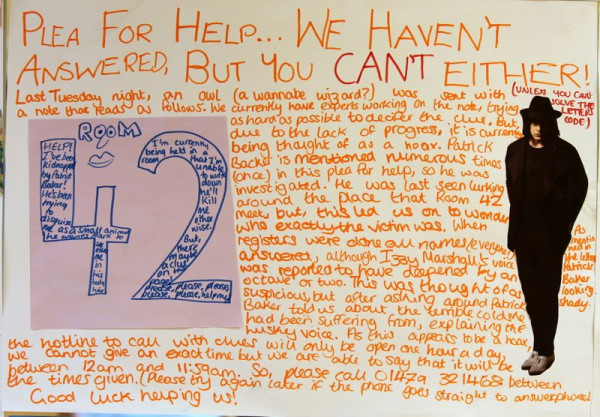 PLEA FOR HELP... WE HAVEN'T
ANSWERED, BUT YOU CAN'T EITHER!
(UNLESS YOU CAN
SOLVE THE
LETTERS
CODE)
Last Tuesday night, an owl (a wannabe wizard?) was sent with
a note that reads as follows. We currently have experts working on the note, trying
as hard as possible to decifer the clue. But
due to the lack of progress, it is currently
being thought of as a hoax. Patrick
Baker is mentioned numerous times
(once) in this plea for help, so he was
investigated. He was last seen lurking
around the place that Room 42
meet, but, this led us on to wonder
who exactly the victim was. When
registers were done all names/everyone
answered, although Izzy Marshall's voice
was reported to have deepened by an
octave or two. This was thought of as
suspicious, but after asking around Patrick
Baker told us about the terrible cold she
had been suffering from, explaining the
husky voice. As this appears to be a hoax,
the hotline to call with clues will only be open one hour a day,
we cannot give an exact time but we are able to say that it will be
between 12am and 11:59am. So, please call 01479 321468 between
the times given. (Please try again later if the phone goes straight to answerphone)
Good luck helping us!
ROOM
HELP!
I've been
kidnapped
by Patrick
Baker!
He's been
trying
to
disguise
me as a small animal
he wants
me in
his
I'm currently
being held in a
room
that I'm
unable
to write
down
he'll
kill
me
other
wise.
But,
there
maybe
a clue
on the
page, please, please,
please, please, help me!
As
mentioned
in the letter
Patrick
Baker
looking
shady.